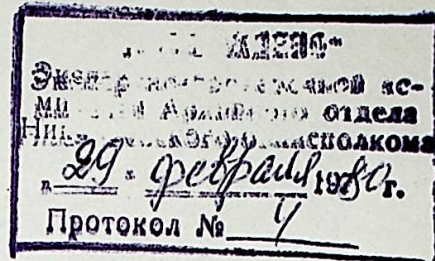 Экспертно-проверочной ко-
миссией Архивного отдела
облисполкома
"29" февраля 1980 г.
Протокол № 4